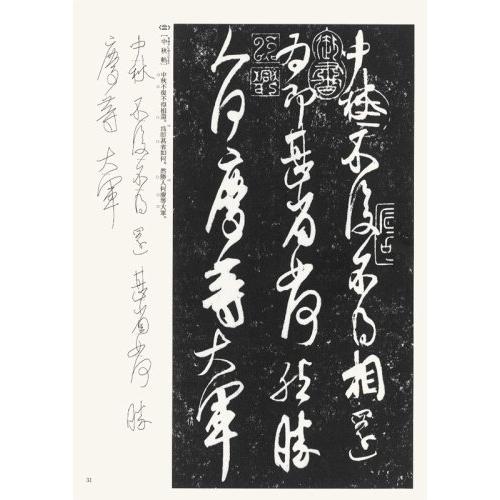 中秋不復不得相還
為即甚省如何然勝
人何慶等大軍
御書
中秋帖
中秋不復不得相還。為即甚省如何。然勝人何慶等大軍。
中秋 不復不得 還 甚省如何 勝
慶等 大軍
31